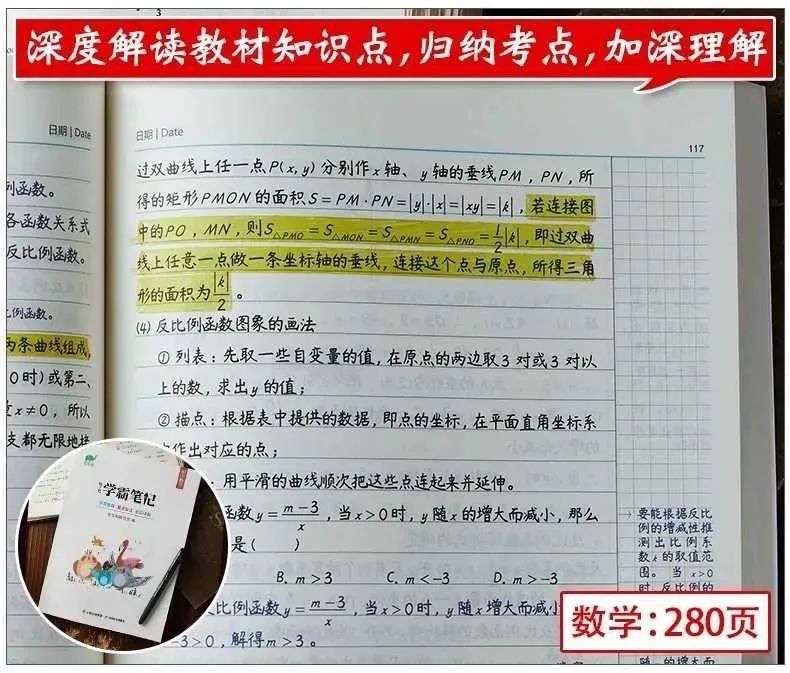 深度解读教材知识点,归纳考点,加深理解
日期 | Date
例函数。
各函数关系式
反比例函数。
比例函数。
两条曲线组成,
0时)或第二、
x≠0,所以
支都无限地接
日期 | Date
117
过双曲线上任一点P(x,y)分别作x轴、y轴的垂线PM,PN,所
得的矩形PMON的面积S=PM·PN=|y|·|x|=|xy|=|k|,若连接图
中的PO,MN,则S△PMO=S△MON=S△PMN=S△PNO=1/2|k|,即过双曲
线上任意一点做一条坐标轴的垂线,连接这个点与原点,所得三角
形的面积为|k|/2。
(4)反比例函数图象的画法
①列表:先取一些自变量的值,在原点的两边取3对或3对以
上的数,求出y的值;
②描点:根据表中提供的数据,即点的坐标,在平面直角坐标系
作出对应的点;
用平滑的曲线顺次把这些点连起来并延伸。
函数y=m-3/x,当x>0时,y随x的增大而减小,那么
是( )
B. m>3 C. m<-3 D. m>-3
比例函数y=m-3/x,当x>0时,y随x增大而减小
-3>0,解得m>3。
要能根据反比
例的增减性推
测出比例系
数k的取值范
围。当x>0
时,反比例的
随x的增大而
学霸笔记
数学:280页